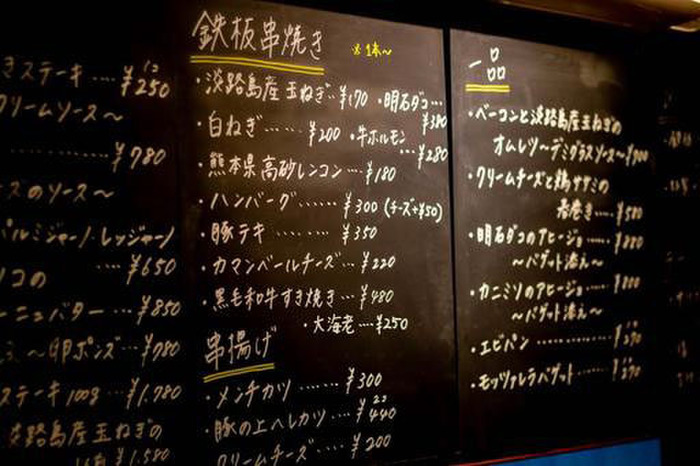 きステーキ‥‥¥250
クリームソース〜
‥‥¥780
スのソース〜
パルミジャーノ・レッジャーノ
‥‥¥650
¥850
〜卵ポンズ‥¥780
ステーキ100g‥¥1.780
淡路島産玉ねぎの
¥1.550
鉄板串焼き
※1本〜
・淡路島産玉ねぎ‥¥170
・明石ダコ‥‥
¥380
・白ねぎ‥‥‥¥200
・牛ホルモン
‥‥¥280
・熊本県高砂レンコン‥‥¥180
・ハンバーグ‥‥‥¥300(チーズ+¥50)
・豚テキ‥‥‥‥¥350
・カマンベールチーズ‥‥¥220
・黒毛和牛すき焼き‥‥¥480
・大海老‥‥¥250
串揚げ
・メンチカツ‥‥‥¥300
・豚の上ヘレカツ‥‥¥440
・クリームチーズ‥‥¥200
一品
・ベーコンと淡路島産玉ねぎの
オムレツ〜デミグラスソース〜
・クリームチーズと鶏ササミの
春巻き‥‥¥580
・明石ダコのアヒージョ‥‥¥880
〜バゲット添え〜
・カニミソのアヒージョ‥‥¥880
〜バゲット添え〜
・エビパン‥‥‥‥¥270
・モッツァレラバゲット‥‥¥270